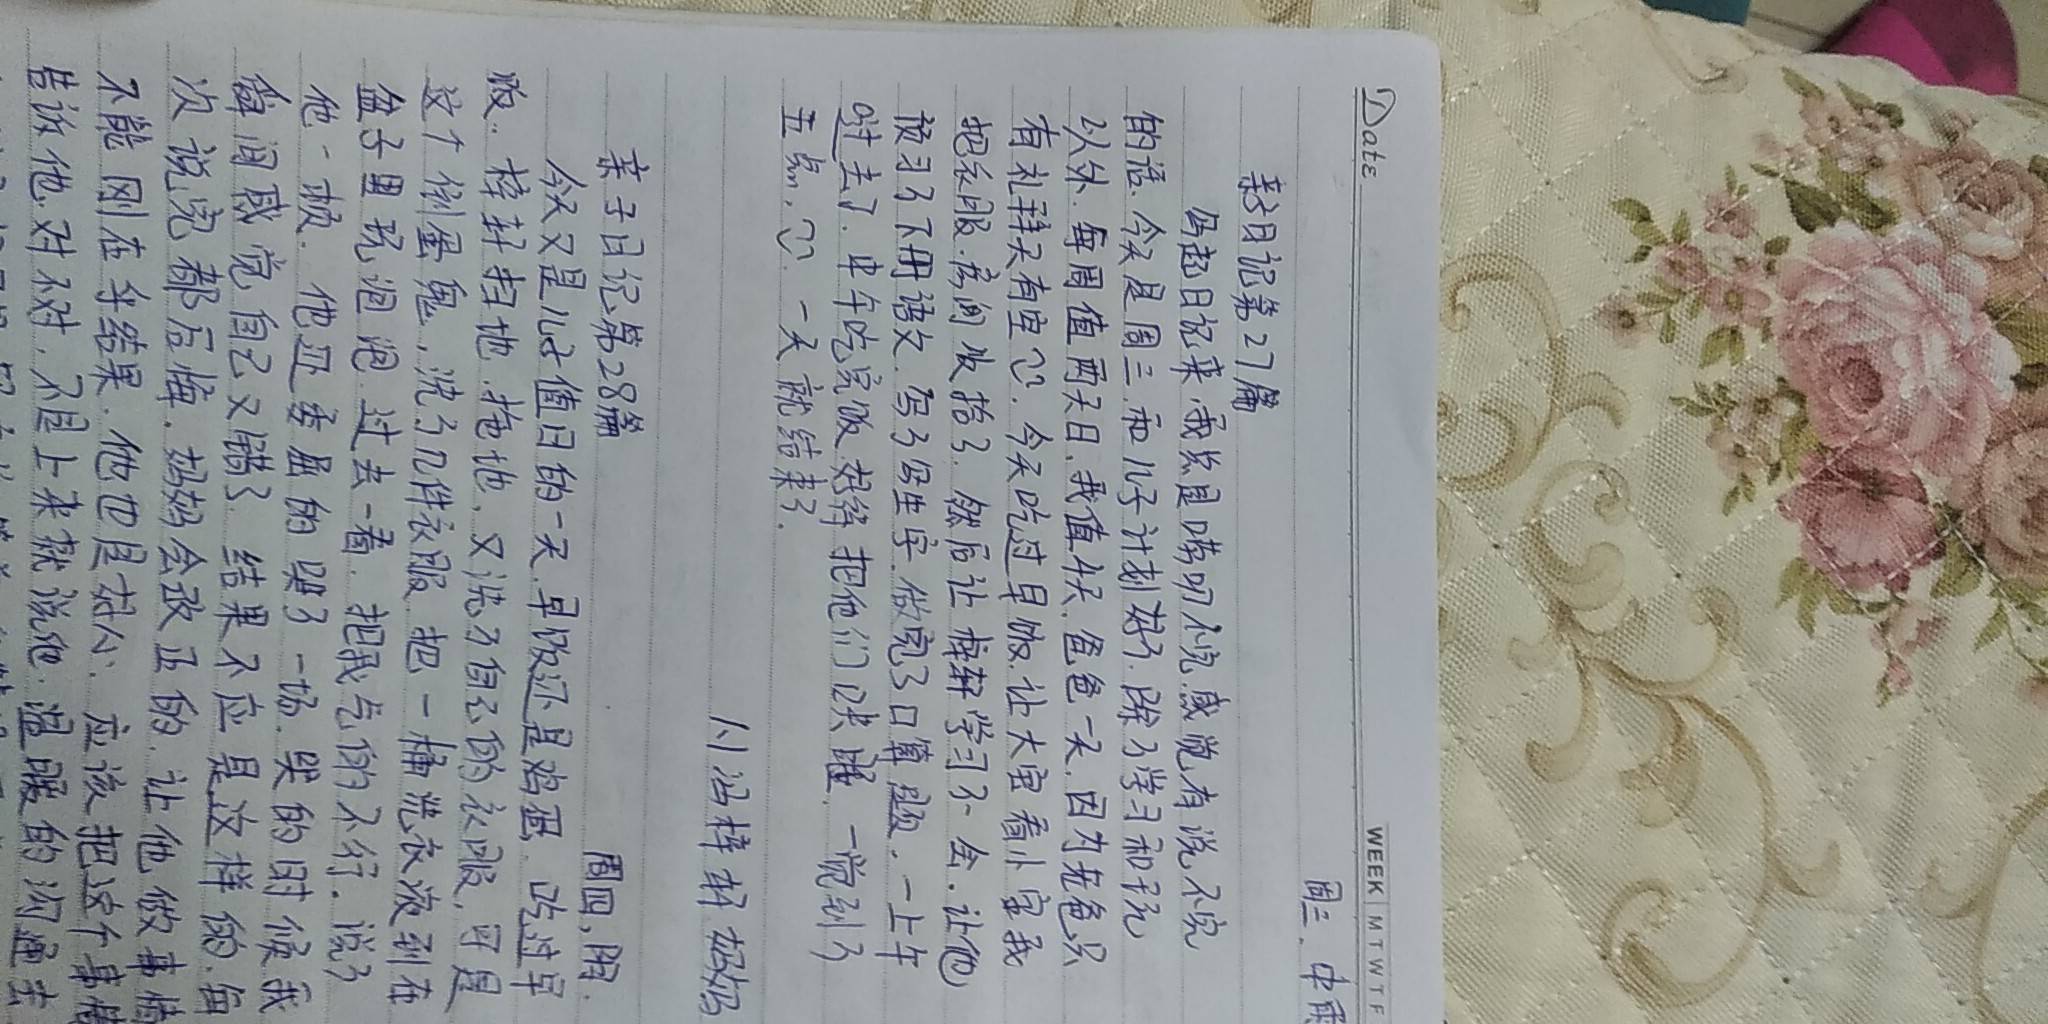 Date
WEEK M T W T F
周三. 中雨
亲子日记第27篇
写起日记来,我总是唠叨个完,感觉有说不完
的话. 今天是周三. 和儿子计划好了. 除了学习和玩
以外. 每周值两天日. 我值4天. 爸爸一天. 因为爸爸只
有礼拜天有空. 今天吃过早饭. 让大宝看小宝我
把衣服. 房间收拾了. 然后让梓轩学习了一会. 让他
预习了下册语文. 写了写生字. 做完了口算题. 一上午
过去了. 中午吃完饭. 好好把他们哄睡. 一觉到了
五点. 一天就结束了.
梓轩妈妈
亲子日记第28篇
周四, 阴.
今天又是儿子值日的一天. 早饭还是鸡蛋. 吃过早
饭. 梓轩扫地. 拖地. 又洗了自己的衣服, 可是
这个捣蛋鬼, 洗了几件衣服. 把一桶洗衣液到在
盆子里玩泡泡. 过去一看. 把我气的不行. 说了
他一顿. 他还委屈的哭了一场. 哭的时候我
瞬间感觉自己又错了. 结果不应是这样的. 每
次说完都后悔. 妈妈会改正的. 让他做事情
不能刚在乎结果. 他也是好心. 应该把这个事情
告诉他. 对不对. 不是上来就说他. 温暖的沟通去